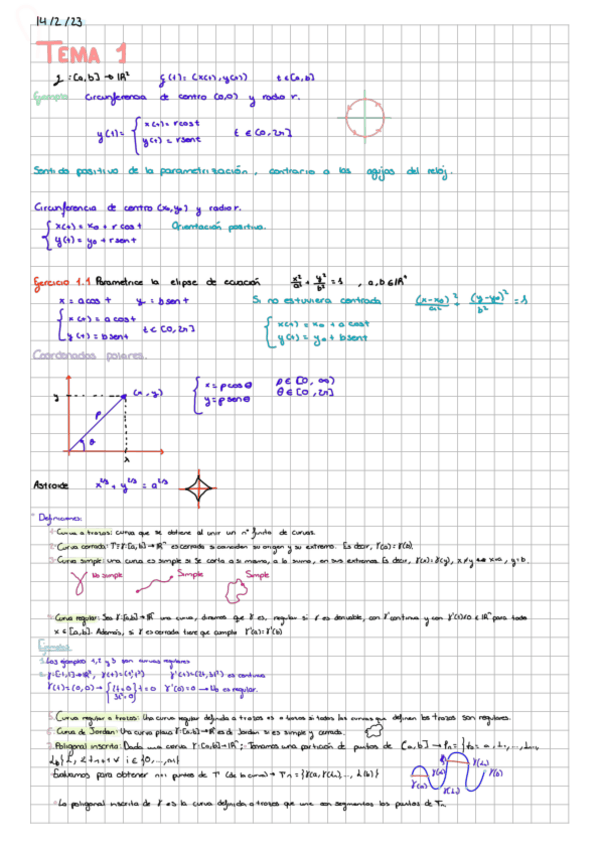 14/2/23
TEMA 1
γ: [a,b] → ℝ² γ(t) = (x(t), y(t)) t ∈ [a,b]
Ejemplo Circunferencia de centro (0,0) y radio r.
γ(t) = { x(t) = r cos t
y(t) = r sen t t ∈ [0, 2π]
Sentido positivo de la parametrización, contrario a las agujas del reloj.
Circunferencia de centro (x₀,y₀) y radio r.
{ x(t) = x₀ + r cos t Orientación positiva.
y(t) = y₀ + r sen t
Ejercicio 1.1 Parametrice la elipse de ecuación x²/a² + y²/b² = 1 , a,b ∈ ℝ⁺
x = a cos t y = b sen t Si no estuviera centrada (x-x₀)²/a² + (y-y₀)²/b² = 1
{ x(t) = a cos t { x(t) = x₀ + a cos t
y(t) = b sen t t ∈ [0, 2π] y(t) = y₀ + b sen t
Coordenadas polares.
y (x, y) { x = ρ cos θ ρ ∈ [0, ∞)
ρ y = ρ sen θ θ ∈ [0, 2π]
θ
x
Astroide x^2/3 + y^2/3 = a^2/3
* Definiciones:
1. Curva a trozos: curva que se obtiene al unir un nº finito de curvas.
2. Curva cerrada: Γ=γ: [a,b] → ℝⁿ es cerrada si coinciden su origen y su extremo. Es decir, γ(a) = γ(b).
3. Curva simple: una curva es simple si se corta a si misma, a lo sumo, en sus extremos. Es decir, γ(x) = γ(y), x ≠ y ⇔ x=a, y=b.
No simple Simple Simple
4. Curva regular: Sea γ: [a,b] → ℝⁿ una curva, diremos que γ es regular si γ es derivable, con γ' continua y con γ'(x) ≠ 0 ∈ ℝⁿ para todo
x ∈ [a,b]. Además, si γ es cerrada tiene que cumplir γ'(a) = γ'(b)
Ejemplo
1. Los ejemplos 1, 2 y 3 son curvas regulares
2. γ: [-1,1] → ℝ², γ(t) = (t², t³) γ'(t) = (2t, 3t²) es continua
γ'(t) = (0,0) → { 2t = 0 3t² = 0 } t = 0 γ'(0) = 0 → No es regular.
5. Curva regular a trozos: Una curva regular definida a trozos es a trozos si todas las curvas que definen los trozos son regulares.
6. Curva de Jordan: Una curva plana γ: [a,b] → ℝ² es de Jordan si es simple y cerrada.
7. Poligonal inscrita: Dada una curva γ: [a,b] → ℝⁿ; Tomamos una partición de puntos de [a,b] → Pn = {t₀ = a, t₁, ..., tn-1,
Evaluamos para obtener n+1 puntos de Γ (de la curva) → Tn = {γ(a), γ(t₁), ..., γ(b)}
γ(a) γ(t₁) γ(t₂) γ(b)
* La poligonal inscrita de γ es la curva definida a trozos que une con segmentos los puntos de Tn